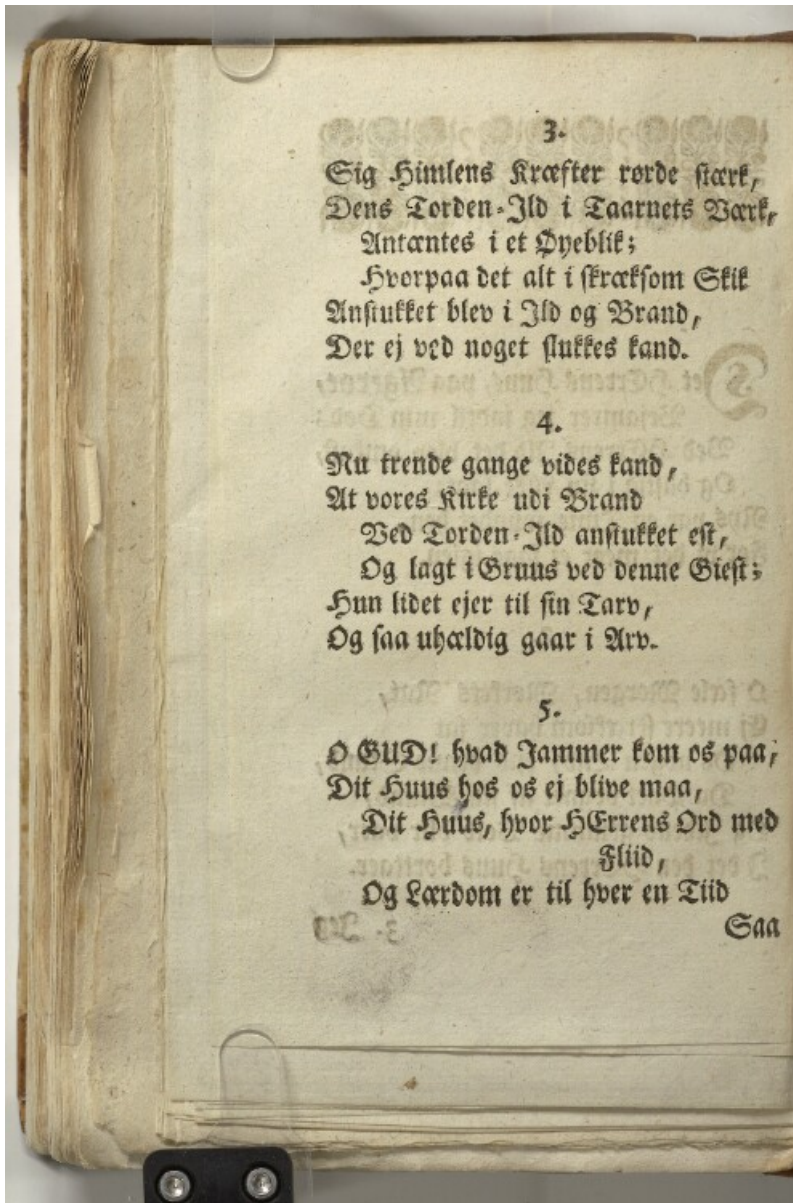 3.
Sig Himlens Kræfter rørde stærk,
Dens Torden-Ild i Taarnets Værk,
Antæntes i et Øyeblik;
Hvorpaa det alt i skræksom Skik
Anstukket blev i Ild og Brand,
Der ej ved noget slukkes kand.
4.
Nu trende gange vides kand,
At vores Kirke udi Brand
Ved Torden-Ild anstukket est,
Og lagt i Gruus ved denne Giest;
Hun lidet ejer til sin Tarv,
Og saa uhældig gaar i Arv.
5.
O GUD! hvad Jammer kom os paa,
Dit Huus hos os ej blive maa,
Dit Huus, hvor HErrens Ord med
Fliid,
Og Lærdom er til hver en Tiid
Saa